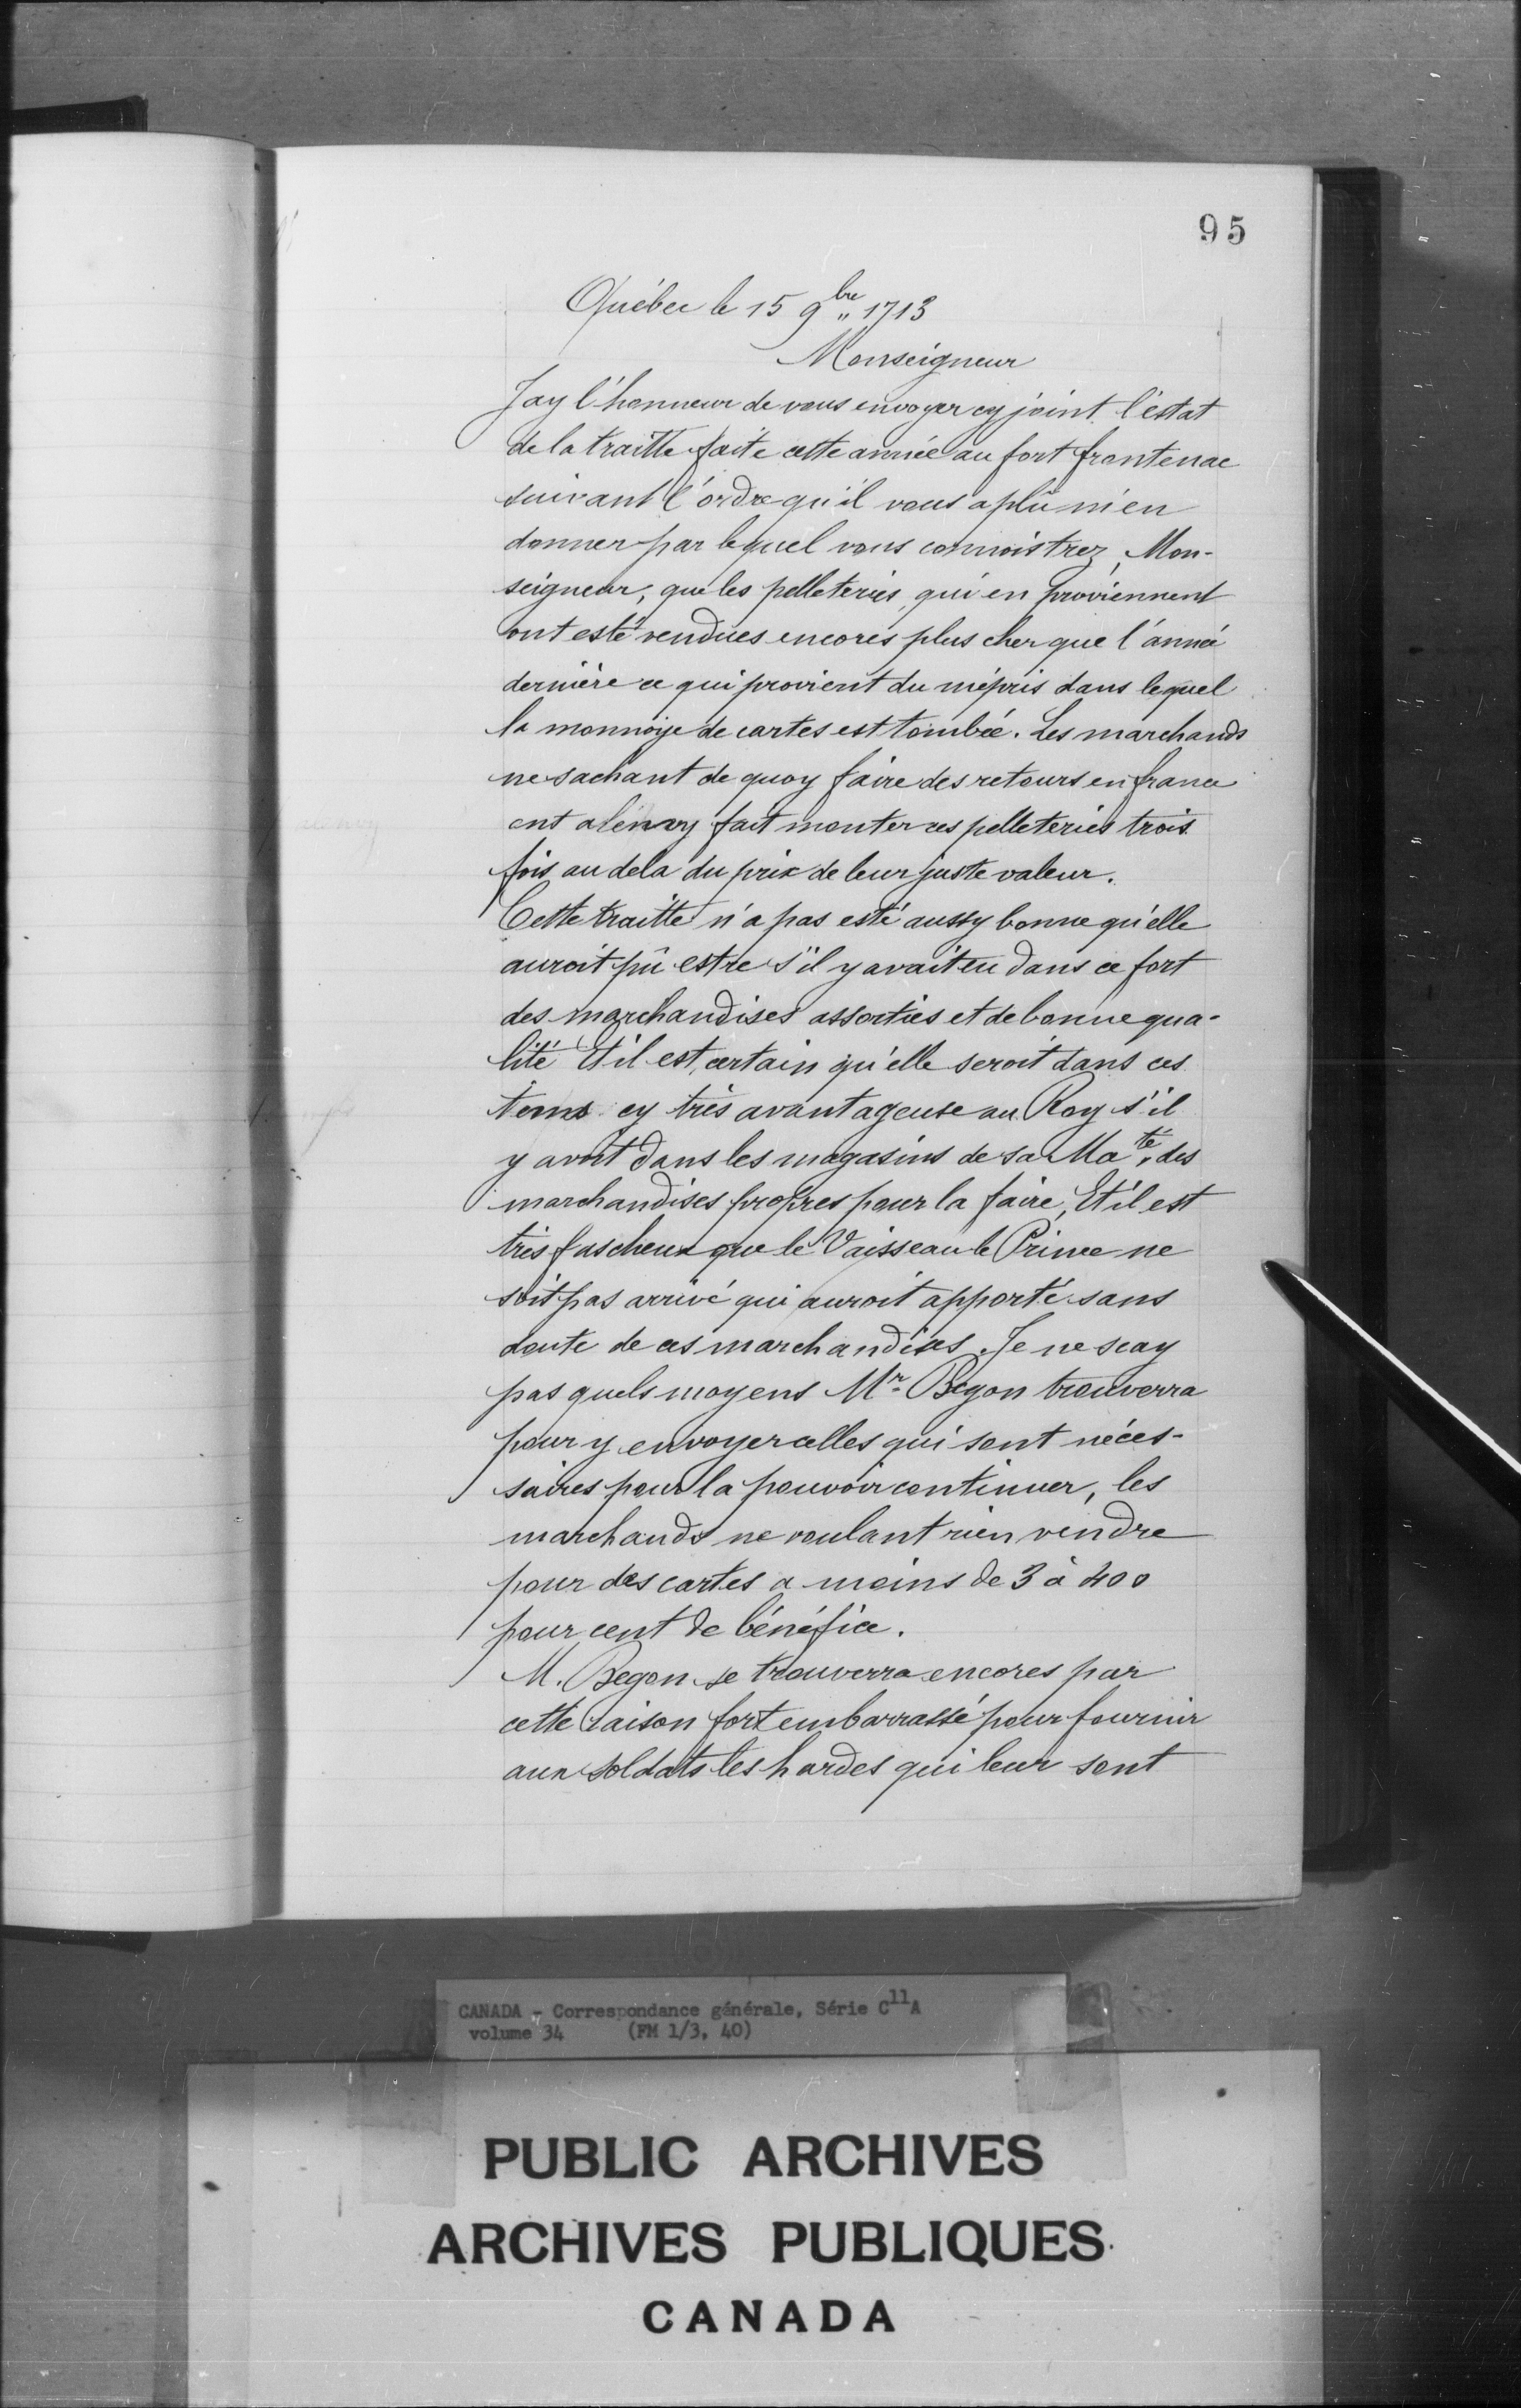 95
Québec le 15 9bre 1713
Monseigneur
Jay l'honneur de vous envoyer cy joint l'estat
de la traitte faite cette année au fort frontenac
suivant l'ordre qu'il vous a plû m'en
donner par lequel vous connoistrez, Mon-
seigneur, que les pelleteries, qui en proviennent
ont esté vendües encores plus cher que l'année
dernière ce qui provient du mépris dans lequel
la monnoye de cartes est tombée. Les marchands
ne sachant de quoy faire des retours en france
ont alenvy fait monter ces pelleteries trois
fois au dela du prix de leur juste valeur.
Cette traitte n'a pas esté aussy bonne qu'elle
auroit pû estre s'il y avait eu dans ce fort
des marchandises assorties et de bonne qua-
lité Et il est certain qu'elle seroit dans ces
tems cy très avantageuse au Roy s'il
y avoit dans les magasins de sa Maté, des
marchandises propres pour la faire, Et il est
très fascheux que le Vaisseau le Prince ne
soit pas arrivé qui auroit apporté sans
doute de ces marchandises. Je ne scay
pas quels moyens Mr. Begon trouverra
pour y envoyer celles qui sont néces-
saires pour la pouvoir continuer, les
marchands ne voulant rien vendre
pour des cartes a moins de 3 à 400
pour cent de bénéfice.
M. Begon se trouverra encores par
cette raison fort embarrassé pour fournir
aux soldats les hardes qui leur sont
CANADA - Correspondance générale, Série C11A
volume 34 (FM 1/3, 40)
PUBLIC ARCHIVES
ARCHIVES PUBLIQUES
CANADA